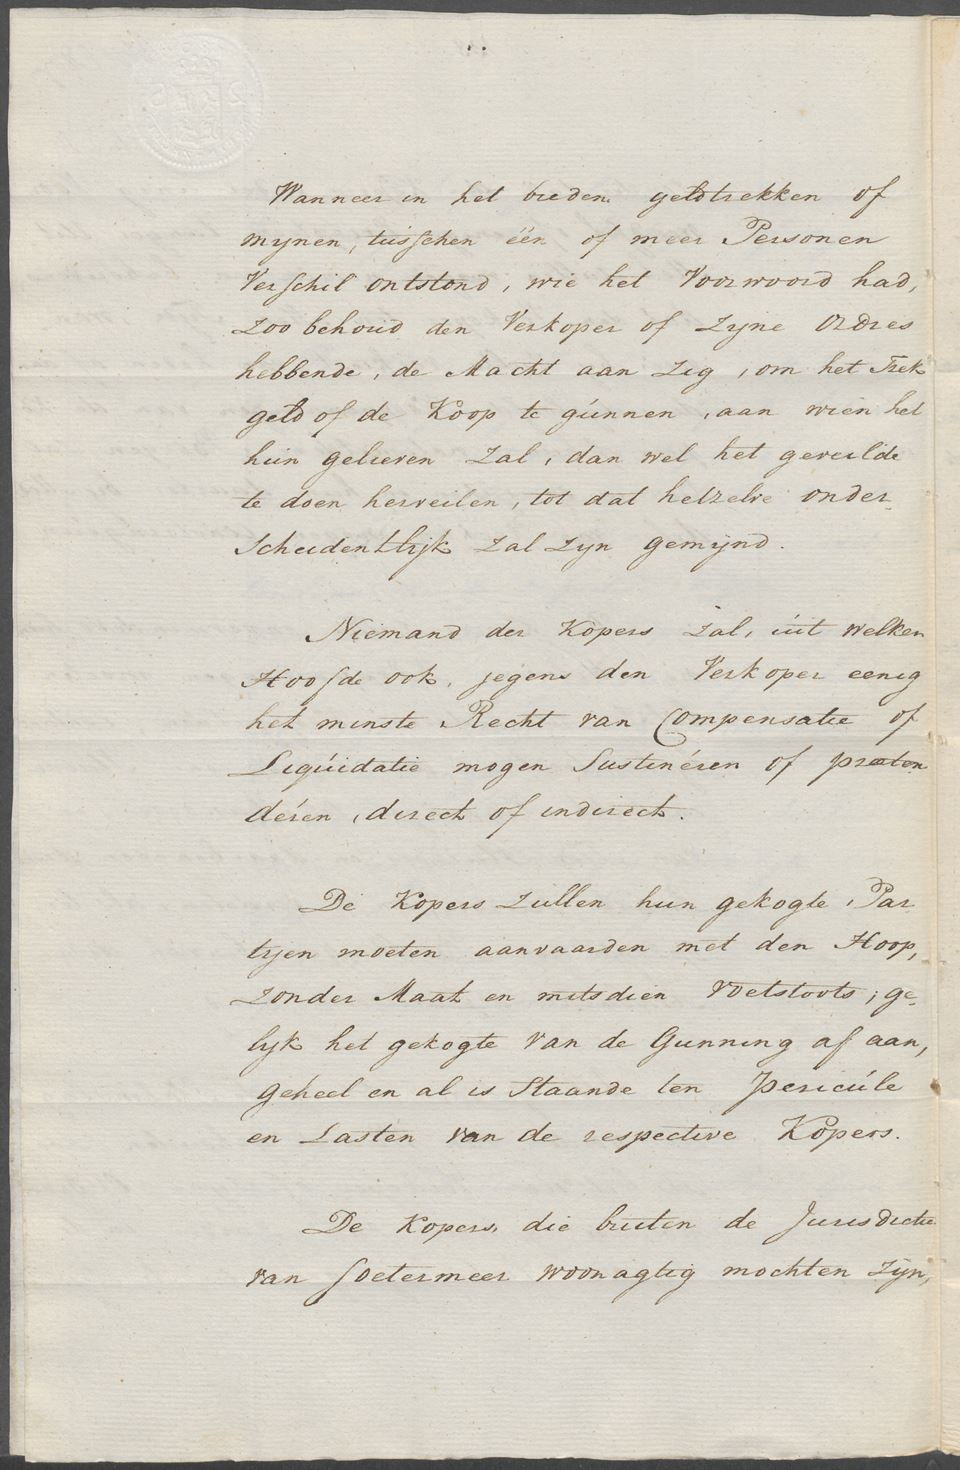 Wanneer in het bieden, geldtrekken of
mynen, tusschen één of meer Personen
Verschil ontstond, wie het Voorwoord had,
zoo behoud den Verkoper of Zyne Ordres
hebbende, de Macht aan Zig, om het Trek
geld of de Koop te gunnen, aan wien het
hun gelieven Zal, dan wel het geveilde
te doen herveilen, tot dat hetzelve onder-
Scheidentlijk Zal Zyn gemijnd.
Niemand der Kopers Zal, uit welken
Hoofde ook, jegens den Verkoper eenig
het minste Recht van Compensatie of
Liquidatie mogen Sustinéren of præten
déren, direct of indirect.
De Kopers Zullen hun gekogte Par
tyen moeten aanvaarden met den Hoop,
Zonder Maat en mitsdien voetstoots; ge-
lyk het gekogte van de Gunning af aan,
geheel en al is Staande ten Pericúle
en Lasten van de respective Kopers.
De Kopers, die buiten de Jurisdictie
van Soetermeer woonagtig mochten Zijn,